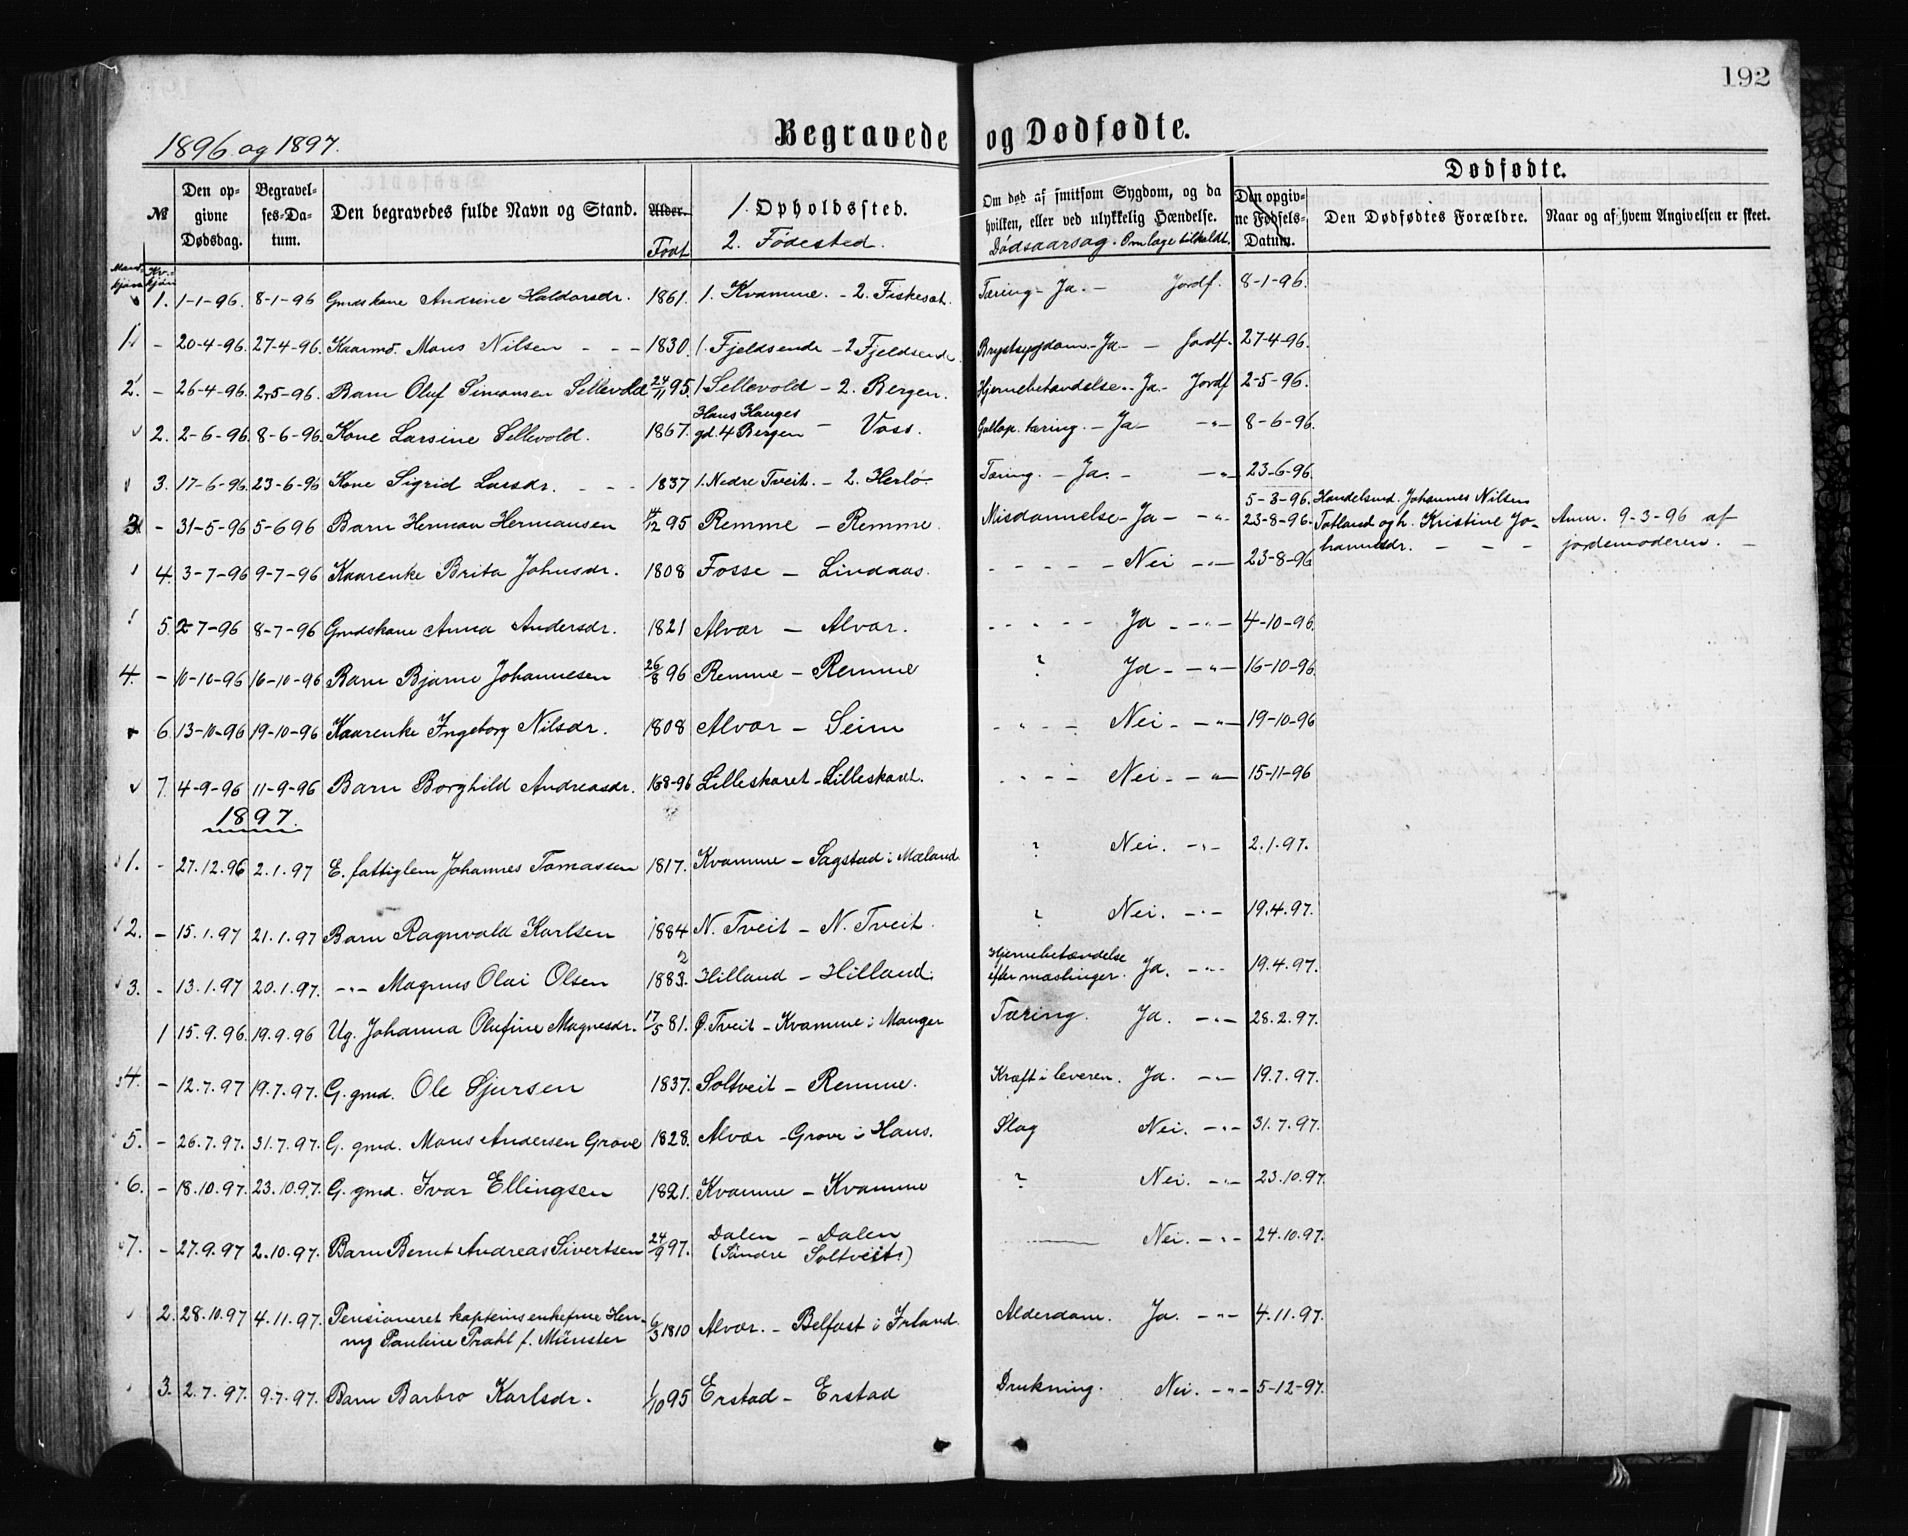 192
Begravede og Dødfødte.
1896 og 1897.
Dødfødte.
№ Den opgivne Dødsdag. Begravelses-Datum. Den begravedes fulde Navn og Stand. Alder. Født 1. Opholdssted. 2. Fødested. Om død af smitsom Sygdom, og da hvilken, eller ved ulykkelig Hændelse. Dødsaarsag. Om læge tilkaldt. Den opgivne Fødsels-Datum. Den Dødfødtes Forældre. Naar og af hvem Angivelsen er skeet.
Mandkjøn Kv.kjøn
1. 1-1-96. 8-1-96 Gmdskone Andrine Haldorsdr. 1861. 1. Kvamme. - 2. Fiskeset. Tæring - Ja. - Jordf. 8-1-96.
1. - 20-4-96. 27-4-96. Kaarmd. Mons Nilsen - - - 1830. 1. Fjeldsende - 2 Fjeldsende. Brystsygdom - Ja - - Jordf. 27-4-96.
2. - 26-4-96. 2-5-96. Barn Oluf Simonsen Sellevold 24/11 95. 1 Sellevold - 2. Bergen. Hjernebetændelse. - Ja - Jordf 2-5-96.
2. 2-6-96. 8-6-96. Kone Larsine Sellevold. 1867. Hans Hauges gd. 4 Bergen - Voss. Gallop. tæring. - Ja - - " - 8-6-96.
3. 17-6-96. 23-6-96 Kone Sigrid Larsdr. - - - 1837 1. Nedre Tveit. - 2. Herlø. Tæring. - Ja. - - " 23-6-96.
5-3-96. Handelsmd. Johannes Nilsen
3 - 31-5-96 5-6 96 Barn Herman Hermansen 14/12 95 Remme - Remme. Misdannelse - Ja - - " - 23-8-96. Tofland og h. Kristine Johannesdr. - - - Anm. 9-3-96 af jordemoderen. -
4. 3-7-96 9-7-96 Kaarenke Brita Johnsdr. 1808 Fosse - Lindaas. - - - - - Nei - " - 23-8-96
5. 2-7-96 8-7-96 Gmdskone Anna Andersdr. 1821 Alvær - Alvær. - - - - - Ja - - " - 4-10-96.
4. - 10-10-96 16-10-96 Barn Bjarne Johannesen 26/8 96 Remme - Remme ? Ja - - " - 16-10-96.
6. 13-10-96 19-10-96 Kaarenke Ingeborg Nilsdr. 1808 Alvær - Seim - - - Nei - - " - 19-10-96
7. 4-9-96 11-9-96 Barn Borghild Andreasdr. 16 8-96 Lilleskaret - Lilleskaret. - - - - Nei - - " - 15-11-96
1897.
1. - 27.12.96 2.1.97 E. fattiglem Johannes Tomassen 1817. Kvamme - Sagstad i Mæland ? Nei. - " - 2.1.97.
2. - 15.1.97 21.1.97 Barn Ragnvald Karlsen 1884 N. Tveit - N. Tveit. ? Nei. - " - 19.4.97.
3. - 13.1.97 20.1.97. - " - Magnus Olai Olsen 1883. 2 Hilland - Hilland. Hjernebetændelse efter mæslinger. Ja. - " - 19.4.97.
1 15.9.96. 19.9.96 Ug. Johanna Olufine Magnesdr. 17/5 81. Ø. Tveit - Kvamme i Manger Tæring. Ja. - " - 28.2.97.
4. - 12.7.97 19.7.97. G. gmd. Ole Sjursen 1837. Soltveit - Remme. Kræft i leveren. Ja. - " - 19.7.97.
5. - 26.7.97. 31.7.97. G. gmd. Mons Andersen Grove 1828. Alvær - Grove i Haus. Slag Nei. - " - 31.7.97.
6. - 18.10.97. 23.10.97. G. gmd. Ivar Ellingsen 1821. Kvamme - Kvamme ? Nei. - " - 23.10.97.
7. - 27.9.97 2.10.97. Barn Bernt Andreas Sivertsen 24/9 97. Dalen - Dalen (Søndre Soltveit) Nei. - " - 24.10.97.
2. 28.10.97 4.11.97. Pensioneret kapteinsenkefrue Henny Pauline Prahl f. Münster 6/3 1810 Alvær. - Belfast i Irland. Alderdom. Ja. - " - 4.11.97.
3. 2.7.97. 9.7.97. Barn Barbro Karlsdr. 1/10 95 Erstad - Erstad Drukning. Nei. - " - 5-12-97.